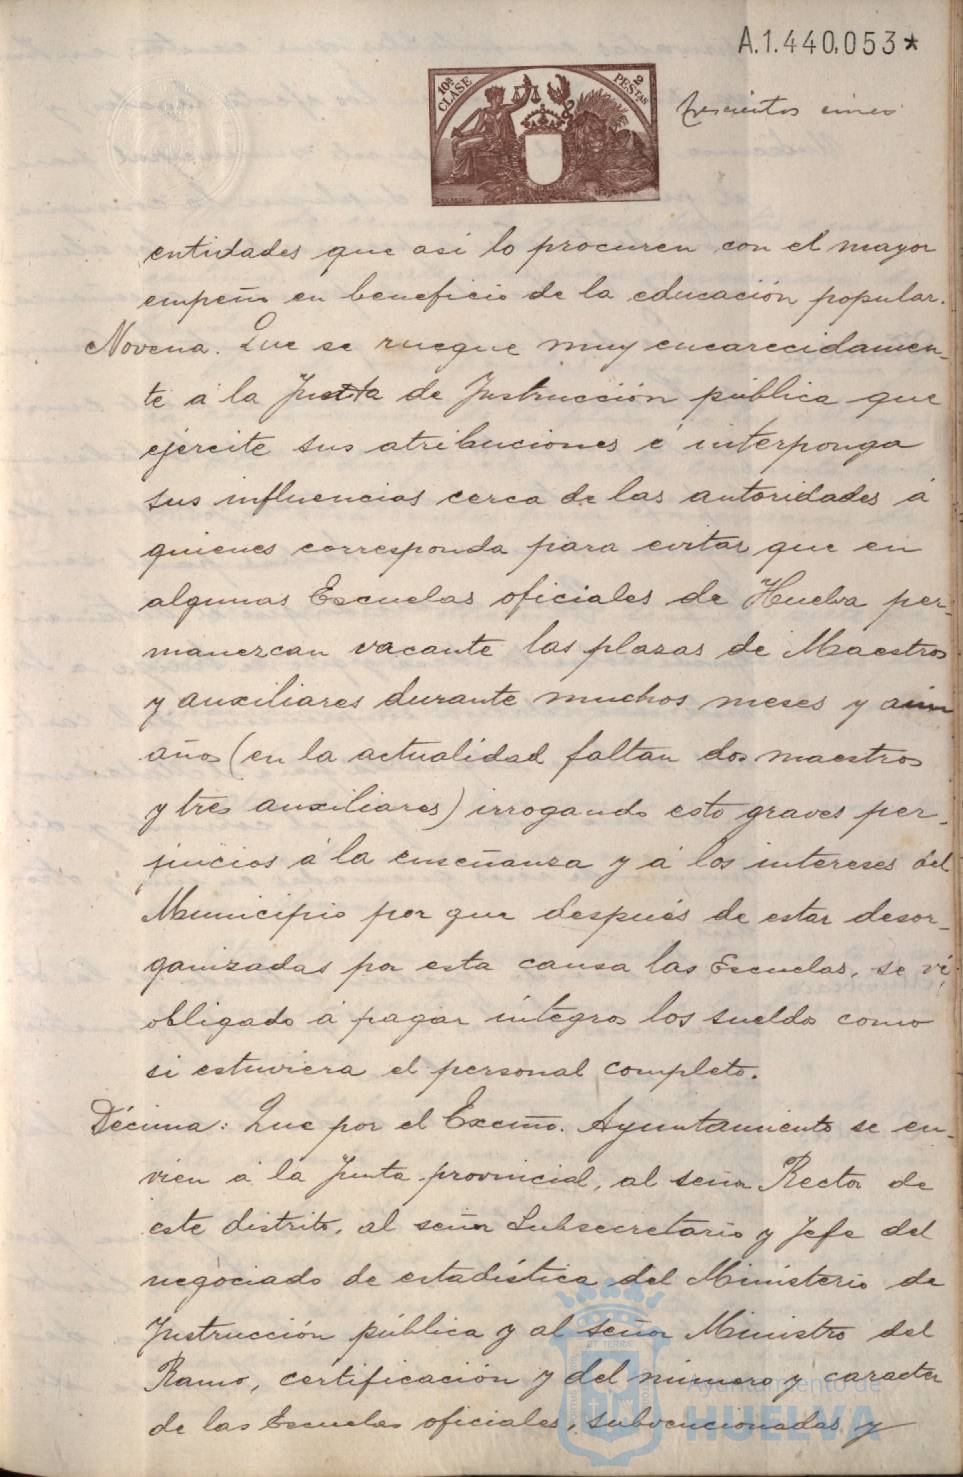 A.1.440,053*
10ª CLASE
2 PESTAS
trescientos cinco
entidades que asi lo procuren con el mayor
empeño en beneficio de la educación popular.
Novena. Que se ruegue muy encarecidamen-
te á la Junta de Instrucción pública que
ejercite sus atribuciones é interponga
sus influencias cerca de las autoridades á
quienes corresponda para evitar que en
algunas Escuelas oficiales de Huelva per-
manezcan vacante las plazas de Maestros
y auxiliares durante muchos meses y aun
años (en la actualidad faltan dos maestros
y tres auxiliares) irrogando esto graves per-
juicios á la enseñanza y á los intereses del
Municipio por que después de estar desor-
ganizadas por esta causa las Escuelas, se vé
obligado á pagar integros los sueldos como
si estuviera el personal completo.
Décima: Que por el Excmo. Ayuntamiento se en-
vien á la Junta provincial, al señor Rector de
este distrito, al señor Subsecretario y Jefe del
negociado de estadística del Ministerio de
Instrucción pública y al señor Ministro del
Ramo, certificación y del número y caracter
de las Escuelas oficiales, subvencionadas y
Ayuntamiento de
HUELVA